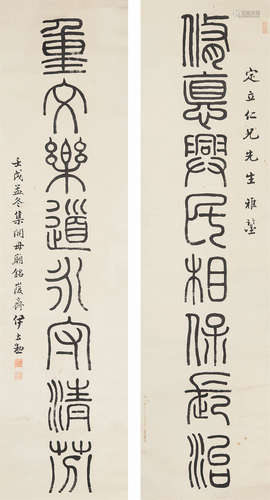 定立仁兄先生雅鑒
脩惪興民相保長治
重文樂道永守清芬
壬戌孟冬集開母廟銘峻齋伊立勳